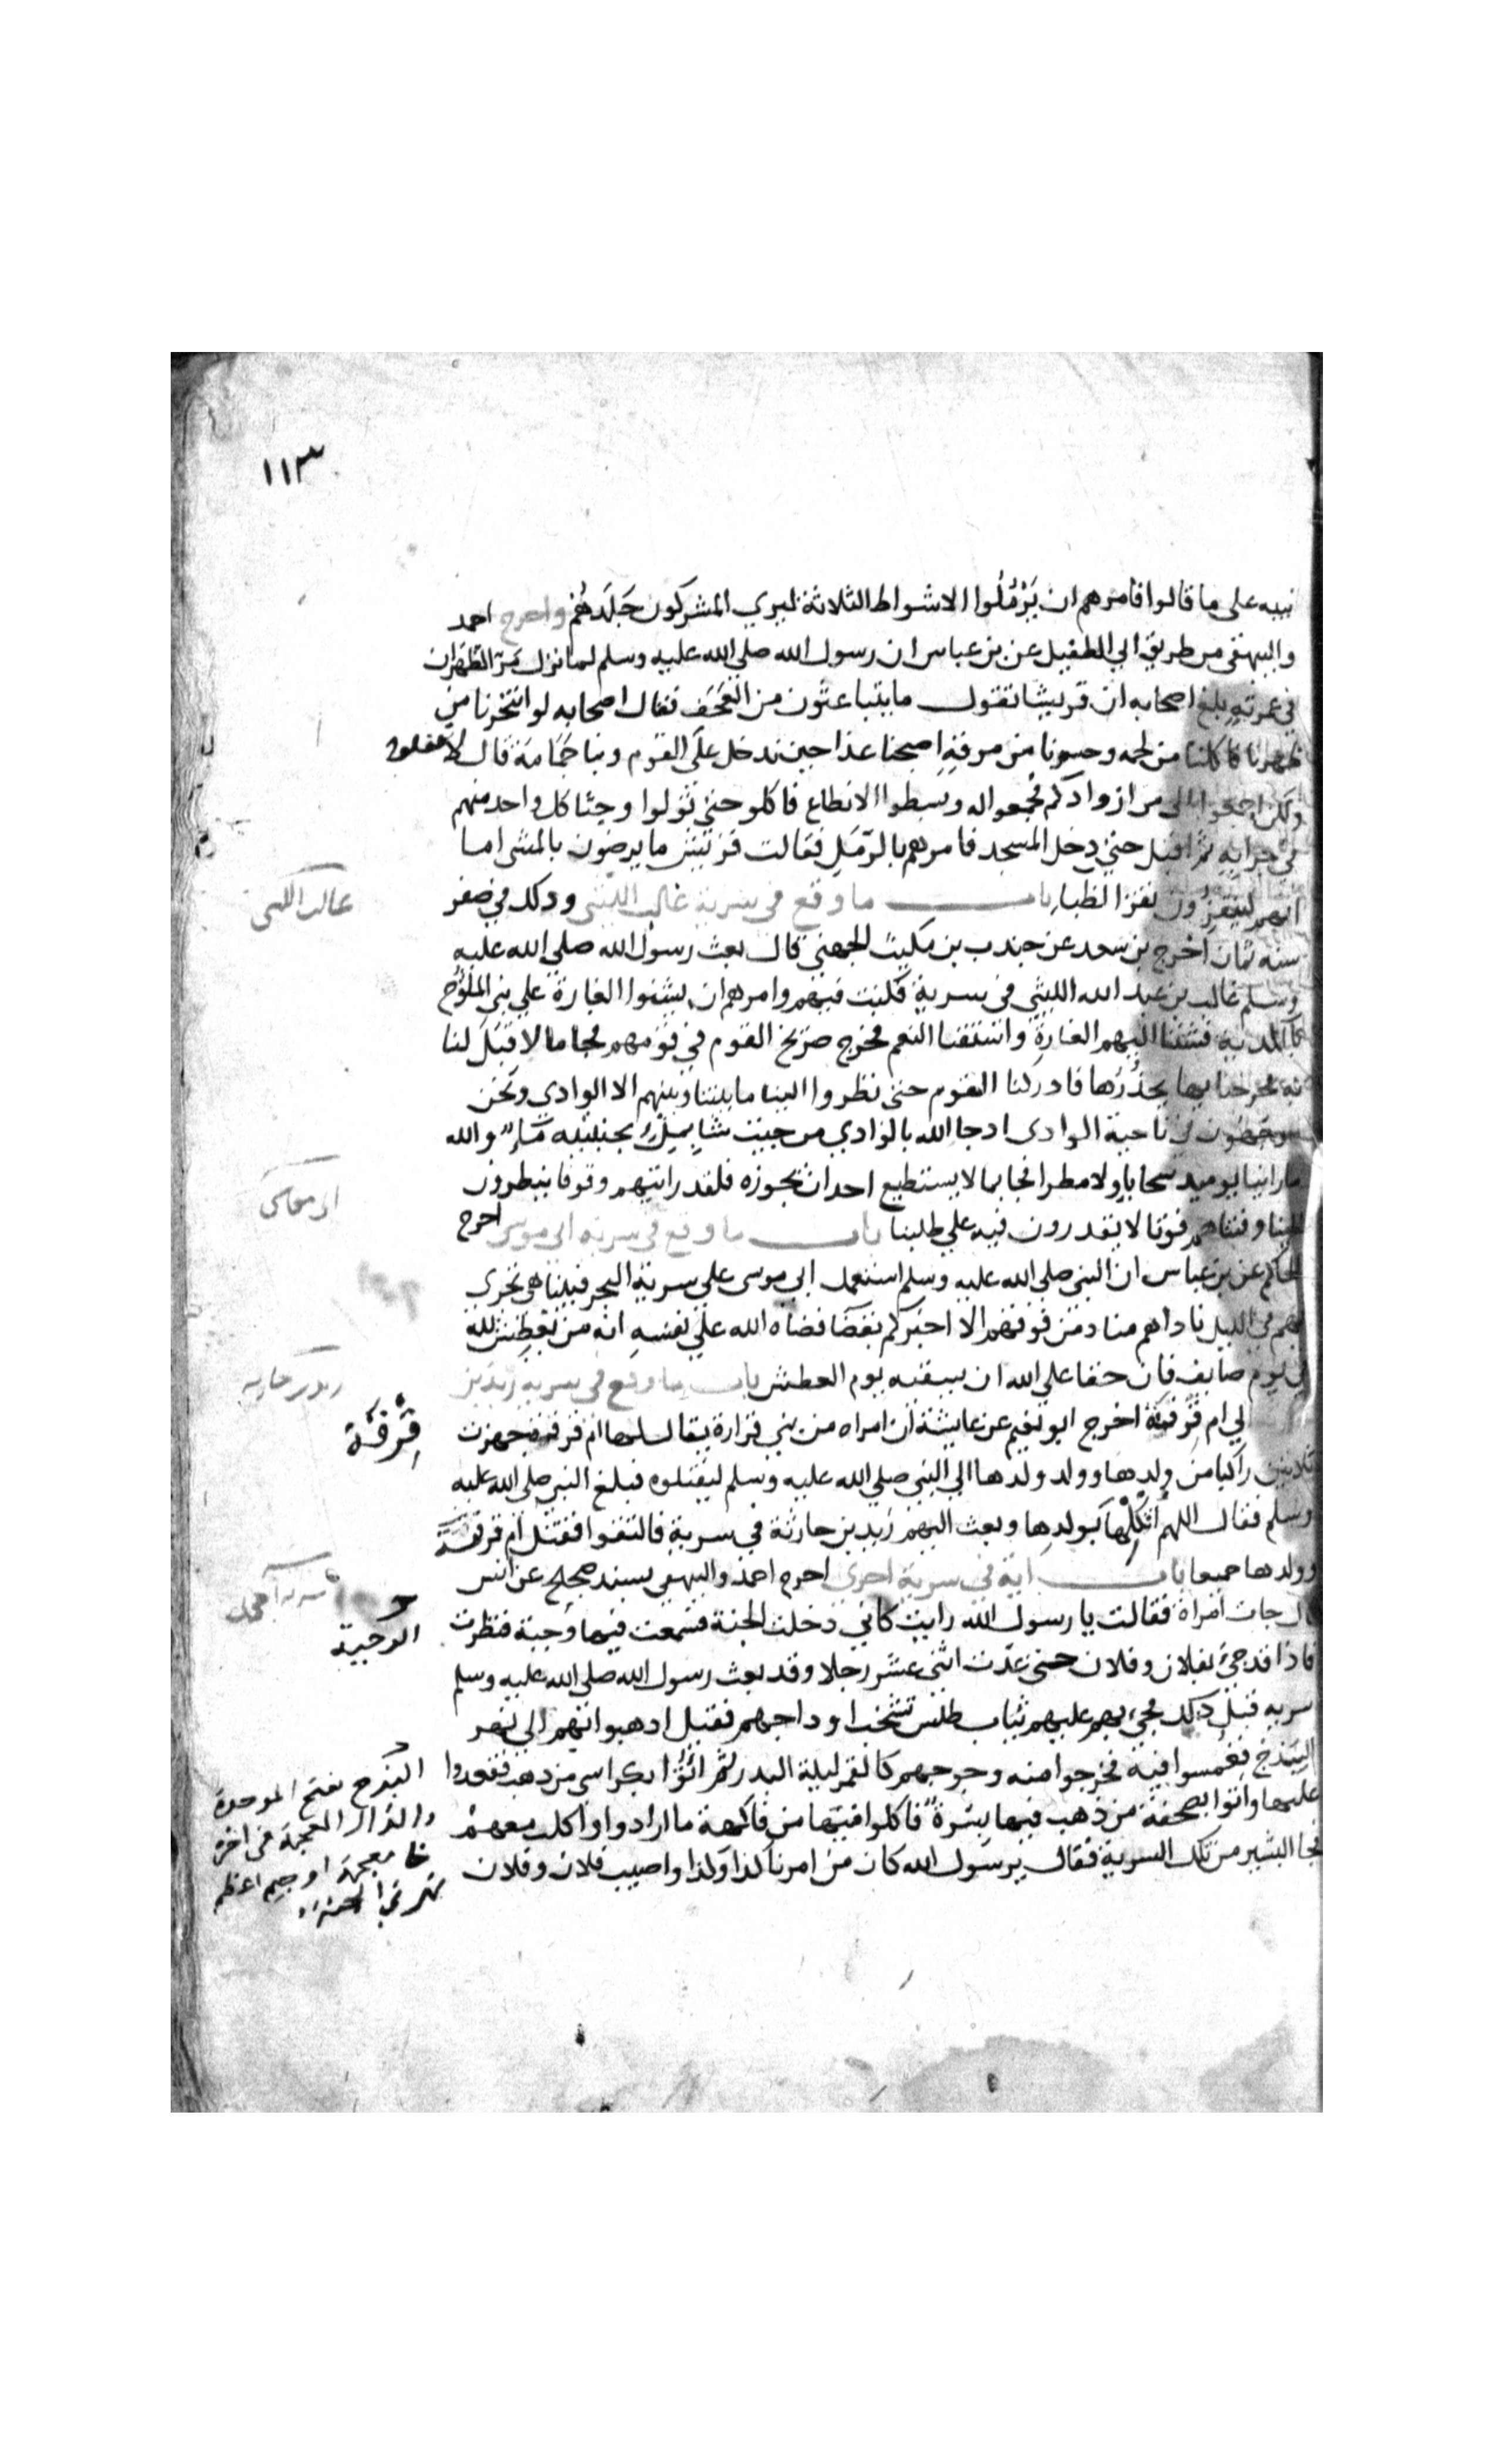 ١١٣
نبيه على ما قالوا فامرهم ان يَرْمُلُوا الاشواط الثلاثة ليري المشركون جَلَدهُم واخرج احمد
والبيهقي من طريق ابي الطفيل عن بن عباس ان رسول الله صلي الله عليه وسلم لما نزل مَرّ الظهران
في عمرته بلغ اصحابه ان قريشا تقول ما يتباعثون من العَجَف فقال اصحابه لو انتحرنا من
ظهرنا فاكلنا من لحمه وحسونا من مرقه اصبحنا غدا حين ندخل على القوم وبنا جَمَامَة قال لا تفعلوا
ولكن اجمعوا الى من ازوادكم فجمعوا له وبسطوا الانطاع فاكلو حتى تولوا وحثا كل واحد منهم
في جرابه ثم اقبل حتى دخل المسجد فامرهم بالرّمَل فقالت قريش ما يرضون بالمشي اما
انهم لينقزون نقز الظبا باب ما وقع في سرية غالب الليثي وذلك في صفر
سنه ثمان اخرج بن سعد عن جندب بن مكيث الجهني قال بعث رسول الله صلى الله عليه
وسلم غالب بن عبد الله الليثي في سرية فكنت فيهم وامرهم ان يشنوا الغارة علي بني الملوّح
بالكديد فشننا عليهم الغارة واستقنا النعم فخرج صريخ القوم في قومهم فجا ما لا قِبَل لنا
به فخرجنا بها يحذُرُها فادركنا القوم حتى نظروا الينا ما بيننا وبينهم الا الوادي ونحن
موجهون في ناحية الوادى اذ جا الله بالوادي من حيث شا يملأ بجنبيه مَاءً والله
ما راينا يوميذ سحابا ولا مطرا فجا بما لا يستطيع احد ان يجوزه فلقد رايتهم وقوفا ينظرون
الينا وفتناهم فوتا لا يقدرون فيه علي طلبنا باب ما وقع في سرية ابي موسى اخرج
الحاكم عن بن عباس ان النبي صلى الله عليه وسلم استعمل ابي موسى علي سرية البحر فبينا هي تجري
بهم في الليل ناداهم مناد من فوقهم الا اخبركم بقضا قضاه الله على نفسه انه من يعطش لله
في يوم صايف فان حقا علي الله ان يسقيه يوم العطش باب ما وقع في سرية زيد بن
الي ام قرفة اخرج ابو نعيم عن عايشة ان امراه من بني فزارة يقال لها ام قرفة جهزت
ثلاثين راكبا من ولدها وولد ولدها الي النبي صلي الله عليه وسلم ليقتلوه فبلغ النبي صلى الله عليه
وسلم فقال اللهم اثكِلْها بولدها وبعث اليهم زيد بن حارثة في سرية فالتقوا فقتل ام قرفة
وولدها جميعا باب اية في سرية اخرى اخرج احمد والبيهقي بسند صحيح عن انس
قال جات امراة فقالت يا رسول الله رايت كاني دخلت الجنة فسمعت فيها وجبة فنظرت
فاذا قد جئ بفلان وفلان حتى عدّت اثني عشر رجلا وقد بعث رسول الله صلى الله عليه وسلم
سريه قبل ذلك فجئ بهم عليهم ثياب طلس تشخب اوداجهم فقيل اذهبوا بهم الى نهر
البَيذخ فغُمسوا فيه فخرجوا منه وجوههم كالقمر ليلة البدر ثم اتوا بكراسي من ذهب فقعدوا
عليها واتوا بصحفة من ذهب فيها بسرةٌ فاكلوا فيها من فاكهة ما ارادوا واكلت معهم
فجا البشير من تلك السرية فقال يرسول الله كان من امرنا كذا وكذا واصيب فلان وفلان
غالب الليثى
ابى موسى
زيد بن حارثه
قِرْفَة
الوجبة
البيذخ بفتح الموحدة
والذال المعجمة في اخره
خا معجمة او جيم اعظم
نهر في الجنة